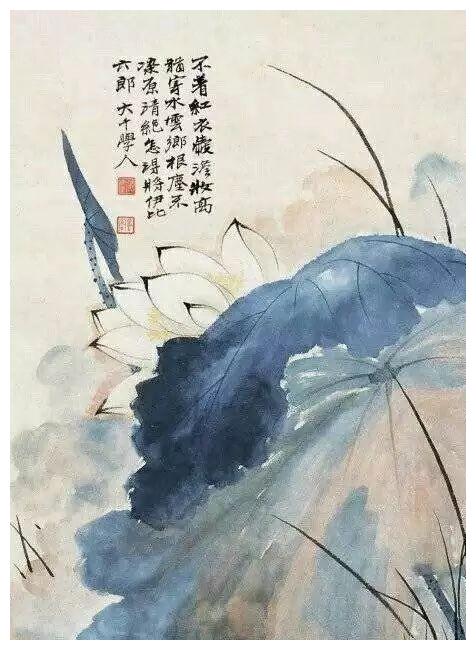 不着紅衣儼淡妝高
猶寄水雲鄉根塵不
染原清絕怎得將伊比
六郎 大千學人